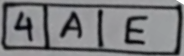 4 A E